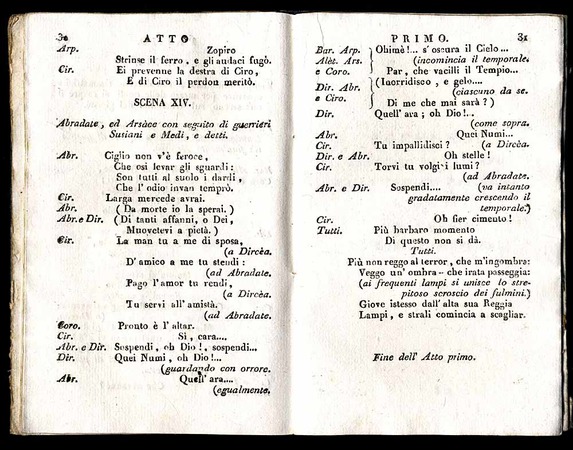 30 ATTO
Arp. Zopiro
Strinse il ferro, e gli audaci fugò.
Cir. Ei prevenne la destra di Ciro,
E di Ciro il perdon meritò.
SCENA XIV.
Abradate, ed Arsace con seguito di guerrieri
Susiani e Medi, e detti.
Abr. Ciglio non v'è feroce,
Che osi levar gli sguardi:
Son tutti al suolo i dardi,
Che l'odio invan temprò.
Cir. Larga mercede avrai.
Abr. (Da morte io la sperai.)
Abr. e Dir. (Di tanti affanni, o Dei,
Muovetevi a pietà.)
Cir. La man tu a me di sposa,
(a Dircèa.
D'amico a me tu stendi:
(ad Abradate.
Pago l'amor tu rendi,
(a Dircèa.
Tu servi all'amistà.
(ad Abradate.
Coro. Pronto è l'altar.
Cir. Si, cara....
Abr. e Dir. Sospendi, oh Dio!, sospendi...
Dir. Quei Numi, oh Dio!...
(guardando con orrore.
Abr. Quell'ara....
(egualmente.
PRIMO. 31
Bar. Arp. Ohimè!... s'oscura il Cielo...
Alèt. Ars. (incomincia il temporale.
e Coro. Par, che vacilli il Tempio...
Dir. Abr. (Inorridisco, e gelo....
e Ciro. (ciascuno da se.
Di me che mai sarà?)
Dir. Quell'ara; oh Dio!..
(come sopra.
Abr. Quei Numi...
Cir. Tu impallidisci? (a Dircèa.
Dir. e Abr. Oh stelle!
Cir. Torvi tu volgi i lumi?
(ad Abradate.
Abr. e Dir. Sospendi.... (va intanto
gradatamente crescendo il
temporale.)
Cir. Oh fier cimento!
Tutti. Più barbaro momento
Di questo non si dà.
Tutti.
Più non reggo al terror, che m'ingombra:
Veggo un'ombra - che irata passeggia:
(ai frequenti lampi si unisce lo stre-
pitoso scroscio dei fulmini.)
Giove istesso dall'alta sua Reggia
Lampi, e strali comincia a scagliar.
Fine dell'Atto primo.